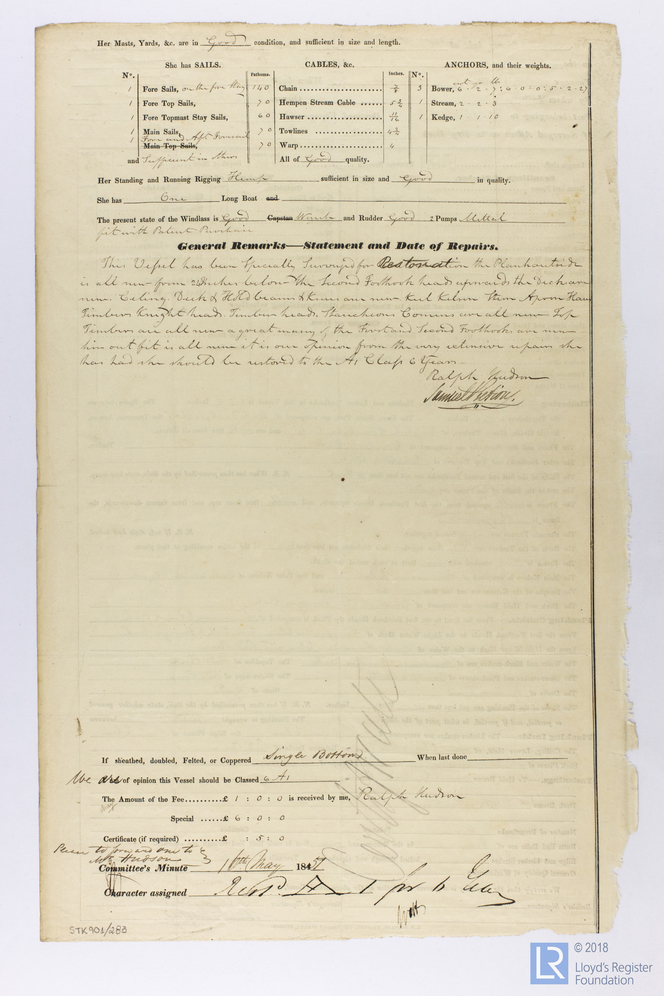 Her Masts, Yards, &c. are in Good condition, and sufficient in size and length.
She has SAILS.
CABLES, &c.
ANCHORS, and their weights.
N°.
Fathoms.
Inches.
N°.
1 Fore Sails, on the fore Stay
Chain 140
3 Bower,
1 Fore Top Sails,
Hempen Stream Cable 70
1 Stream, 2 - 2 - 3
1 Fore Topmast Stay Sails,
Hawser 60
1 Kedge, 1 - 1 - 10
1 Main Sails,
Towlines 70
1 Fore and Aft
Main Top Sails,
Warp 70
and Sufficient in
All of Good quality.
Her Standing and Running Rigging Hemp sufficient in size and Good in quality.
She has One Long Boat and
The present state of the Windlass is Good Capstan Winch and Rudder Good 2 Pumps Mettal
fit with Patent
General Remarks—Statement and Date of Repairs.
This Vessel has been Specially Surveyed for Restoration the Plank outside
is all new from 2 Strakes below the Second Foothook heads upwards the Deck are
new Celing Deck & Hold beams & Knees are new Keel Kelson Stem Apron
Timbers Knight heads Timber heads Stancheons are all new Top
Timbers are all new a great many of the First and Second Foothooks are new
her out fit is all new it is our opinion from the very extensive repairs she
has had she should be restored to the A1 Class 6 Years
Ralph Hudson
Samuel
If sheathed, doubled, Felted, or Coppered Single Bottom When last done
We are of opinion this Vessel should be Classed 6 A1
The Amount of the Fee..........£ 1 : 0 : 0 is received by me, Ralph Hudson
Special ......£ 6 : 0 : 0
Certificate (if required) ..........£ : 5 : 0
Please to forward one to
Mr Hudson
Committee's Minute 16th May 184
Character assigned
STK904/283
LR
© 2018
Lloyd's Register
Foundation